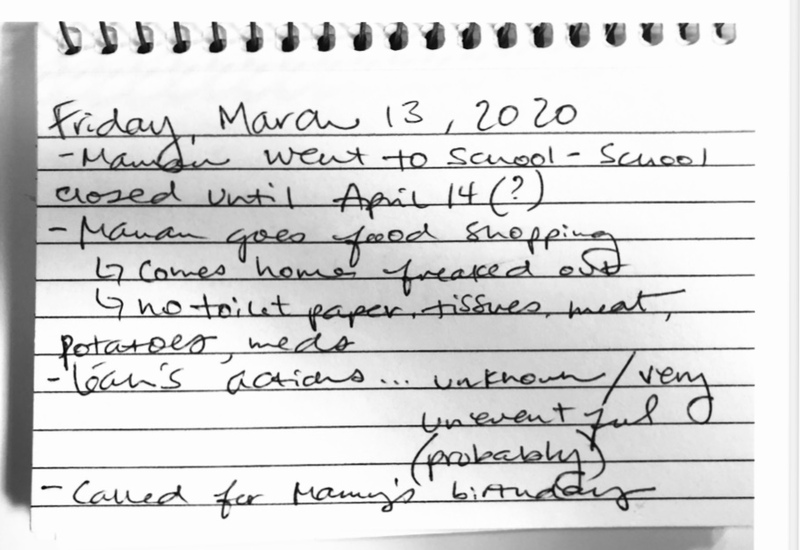 Friday, March 13, 2020
- went to school - school
closed until April 14 (?)
- Maman goes food shopping
↳ comes home freaked out
↳ no toilet paper, tissues, meat,
potatoes, meds
- Léan's actions... unknown / very
uneventful
(probably)
- Called for Mamy's birthday